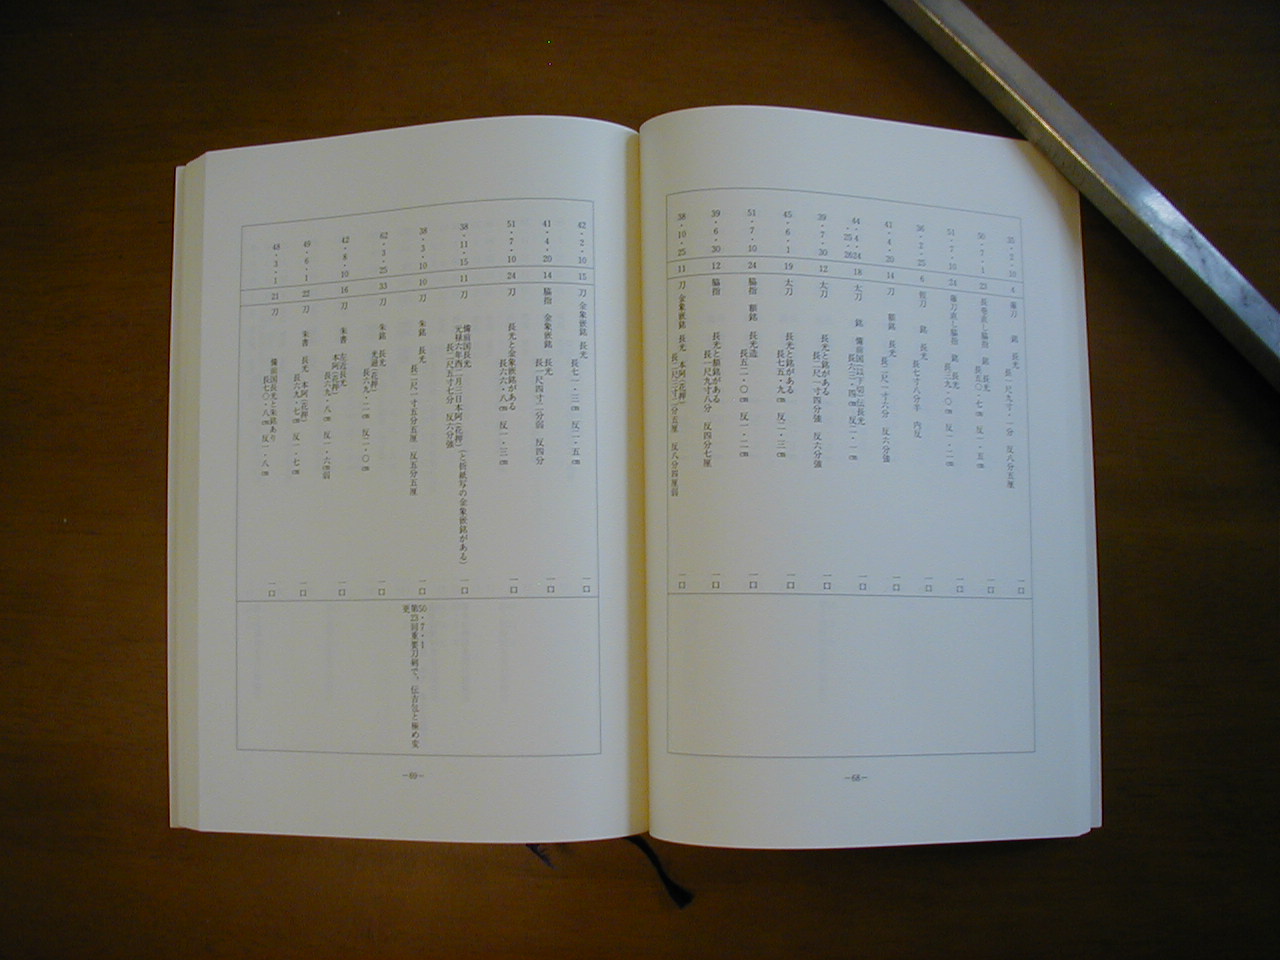 35・2・10
4
薙刀
銘 長光
長一尺九寸・一分 反八分五厘
一口
50・7・1
23
長巻直し脇指 銘 長光
長五〇・七㎝ 反一・五㎝
一口
51・7・10
24
薙刀直し脇指 銘 長光
長三九・〇㎝ 反一・二㎝
一口
36・2・25
6
短刀
銘 長光
長七寸八分半 内反
一口
41・4・20
14
刀
額銘 長光
長二尺一寸六分 反六分強
一口
44・4・24
・25・26
18
太刀
銘 備前国(以下切)伝長光
長六三・四㎝ 反二・一㎝
一口
39・7・30
12
太刀
長光と銘がある
長二尺一寸四分強 反六分強
一口
45・6・1
19
太刀
長光と銘がある
長七五・九㎝ 反二・三㎝
一口
51・7・10
24
脇指 額銘 長光造
長五二・〇㎝ 反一・二㎝
一口
39・6・30
12
脇指
長光と額銘がある
長一尺九寸八分 反四分七厘
一口
38・10・25
11
刀 金象嵌銘 長光 本阿(花押)
長二尺三寸二分五厘 反八分四厘弱
一口
―68―
42・2・10
15
刀 金象嵌銘 長光
長七一・三㎝ 反二・五㎝
一口
41・4・20
14
脇指 金象嵌銘 長光
長一尺四寸二分弱 反四分
一口
51・7・10
24
刀
長光と金象嵌銘がある
長六六・八㎝ 反一・三㎝
一口
38・11・15
11
刀
備前国長光
元禄六年酉二月三日本阿(花押)(と折紙写の金象嵌銘がある)
長二尺五寸七分 反六分強
一口
38・3・10
10
刀
朱銘 長光
長二尺一寸五分五厘 反五分五厘
一口
50・7・1
第23回重要刀剣で、伝吉伝と極め変
更
62・3・25
33
刀
朱銘 長光
光遜(花押)
長六九・二㎝ 反二・〇㎝
一口
42・8・10
16
刀
朱書 左近長光
本阿(花押)
長六九・八㎝ 反一・六㎝弱
一口
49・6・1
22
刀
朱書 長光 本阿(花押)
長六九・七㎝ 反一・七㎝
一口
48・3・1
21
刀
備前国長光と朱銘あり
長七〇・八㎝ 反一・八㎝
一口
―69―